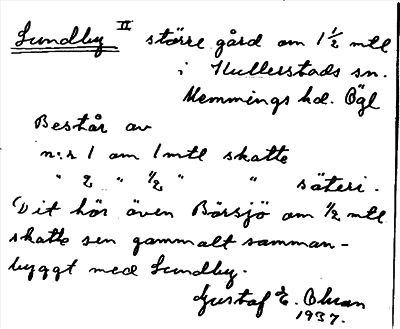 Lundby II större gård om 1 1/2 mtl
i Kullerstads sn.
Memmings hd. Ögl
Består av
n:r 1 om 1 mtl skatte
" 2 " 1/2 " " säteri.
Dit hör även Börsjö om 1/2 mtl
skatte sen gammalt samman-
byggt med Lundby.
Gustaf E. Ohsan
1937.